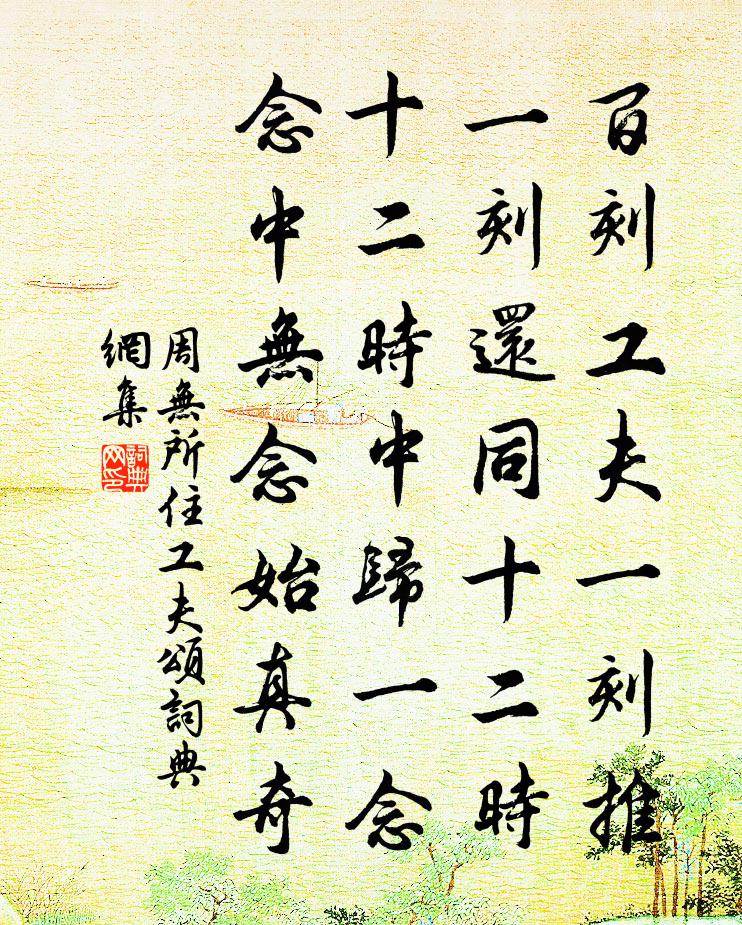 百刻工夫一刻推
一刻還同十二時
十二時中歸一念
念中無念始真奇
周無所住工夫頌詞典
網集
詞典
网印